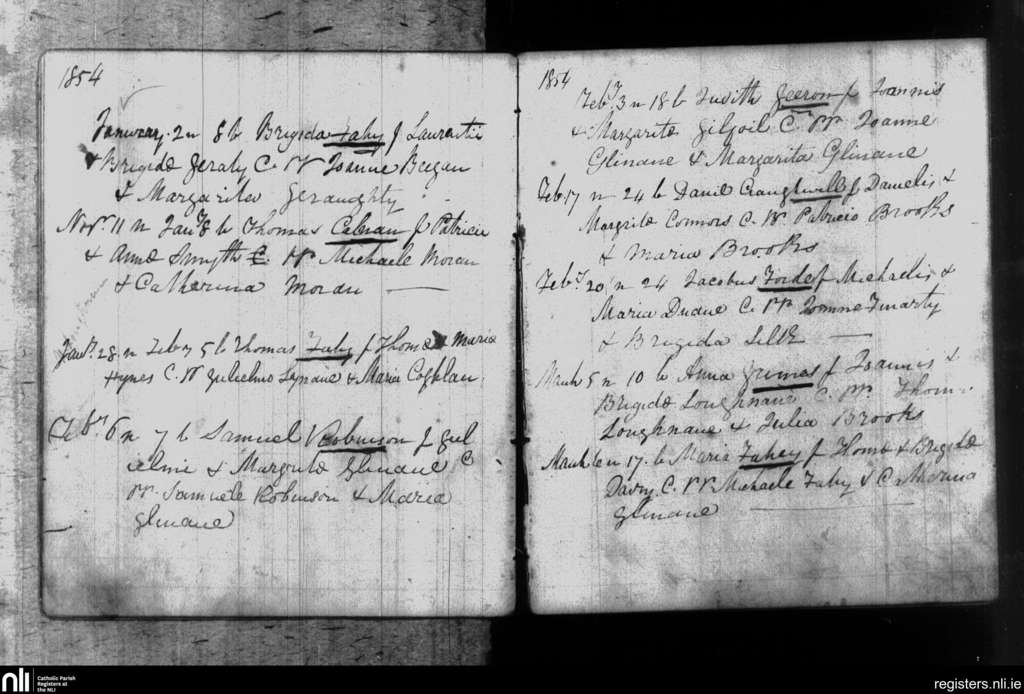 1854
January 2 n 8 b Brigida Fahy f Laurentii
& Brigidæ Geraty C. pp Joanne Began
& Margarita Geraughty
Novr. 11 n Jany 8 b Thomas Calnan f Patricii
& Annæ Smyth C. pp. Michaele Moran
& Catherina Moran
Jany. 28 n Feby 5 b Thomas Fahy f Thomæ & Maria
Hynes C. pp Gulielmo & Maria Coghlan
Feby 6 n 7 b Samuel Robinson f Gul
ielmi & Margritæ Glinane C
pp. Samuele Robinson & Maria
Glinane
1854
Feby. 3 n 18 b Judith f Joannis
& Margaritæ Gilgoil C. pp. Joanne
Glinane & Margarita Glinane
Feb. 17 n 24 b Daniel Craughwell f Danielis &
Margritæ Connors C. pp. Patricio Brooks
& Maria Brooks
Feby. 20 n 24 Jacobus Forde f Michaelis &
Maria Duane C. pp. Joanne Finarty
& Brigida Silk
March 5 n 10 b Anna Grimes f Joannis &
Brigidæ Loughnane C. pp. Thom
Loughnane & Julia Brooks
March 16 n 17. b Maria Fahey f Thomæ & Brigidæ
Davry C. pp. Michaele Fahy & Catherina
Glinane
nli
Catholic Parish
Registers at
the NLI
registers.nli.ie